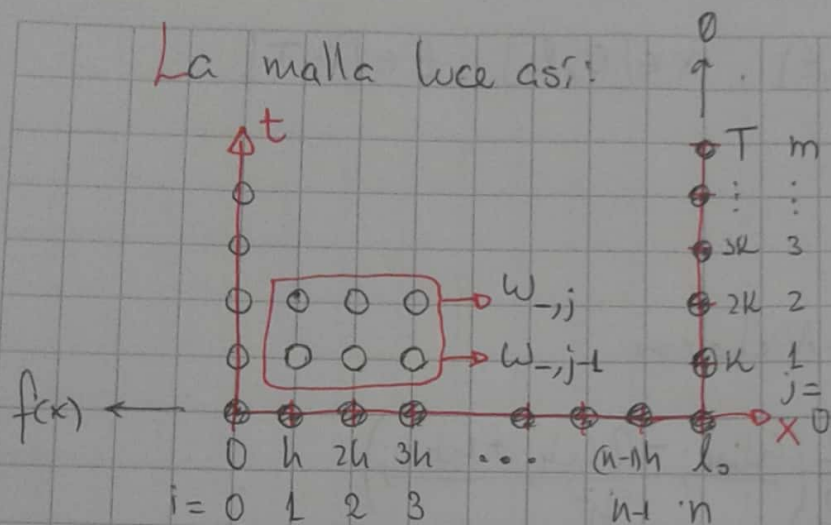 0
La malla luce así:
t
T m
⋮ ⋮
3k 3
W_,j
2k 2
W_,j-1
k 1
j=
f(x)
x 0
0 h 2h 3h ... (n-1)h l₀
i= 0 1 2 3 n-1 n